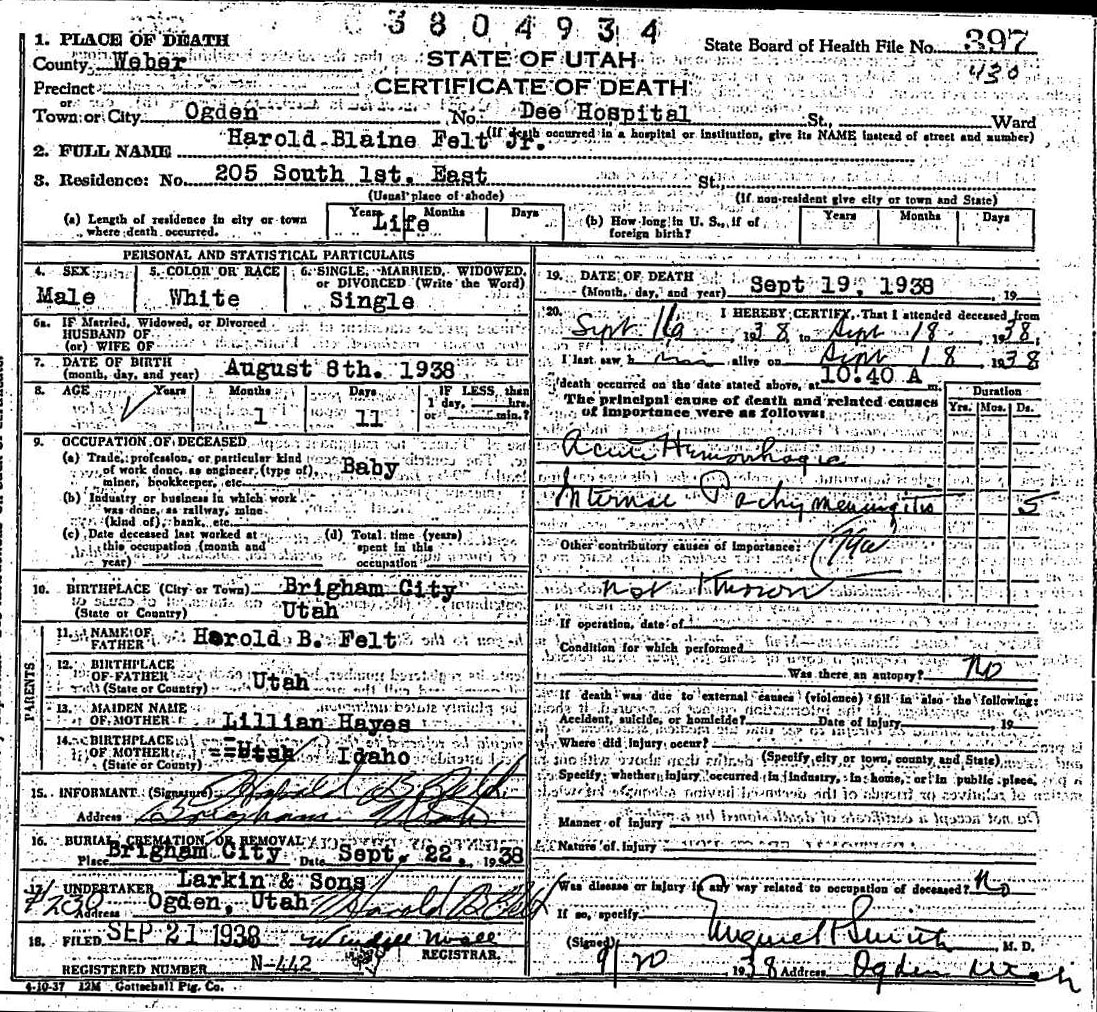 3804934
1. PLACE OF DEATH
State Board of Health File No. 397
430
County Weber
STATE OF UTAH
Precinct
CERTIFICATE OF DEATH
or
Town or City Ogden No. Dee Hospital St., Ward
(If death occurred in a hospital or institution, give its NAME instead of street and number)
2. FULL NAME Harold Blaine Felt Jr.
3. Residence: No. 205 South 1st. East St.,
(Usual place of abode) (If non-resident give city or town and State)
(a) Length of residence in city or town where death occurred. Years Months Days
Life
(b) How long in U. S., if of foreign birth? Years Months Days
PERSONAL AND STATISTICAL PARTICULARS
4. SEX 5. COLOR OR RACE 6. SINGLE, MARRIED, WIDOWED, or DIVORCED (Write the Word)
Male White Single
6a. IF Married, Widowed, or Divorced
HUSBAND OF
(or) WIFE OF
7. DATE OF BIRTH
(month, day, and year) August 8th. 1938
8. AGE Years Months Days IF LESS than
1 day, hrs.
or min.?
1 11
9. OCCUPATION OF DECEASED
(a) Trade, profession, or particular kind
of work done, as engineer, (type of), Baby
miner, bookkeeper, etc.
(b) Industry or business in which work
was done, as railway, mine
(kind of), bank, etc.
(c) Date deceased last worked at
this occupation (month and
year)
(d) Total time (years)
spent in this
occupation
10. BIRTHPLACE (City or Town) Brigham City
(State or Country) Utah
PARENTS
11. NAME OF
FATHER Harold B. Felt
12. BIRTHPLACE
OF FATHER Utah
(State or Country)
13. MAIDEN NAME
OF MOTHER Lillian Hayes
14. BIRTHPLACE
OF MOTHER Utah Idaho
(State or Country)
15. INFORMANT (Signature) Harold B Felt
Address Brigham Utah
16. BURIAL, CREMATION, OR REMOVAL
Place Brigham City Date Sept. 22., 1938
17. UNDERTAKER Larkin & Sons
#230
Address Ogden, Utah Harold B Felt
18. FILED SEP 21 1938
REGISTRAR.
REGISTERED NUMBER N-442
4-10-37 12M Gottschall Ptg. Co.
19. DATE OF DEATH
(Month, day, and year) Sept 19, 1938, 19
20. I HEREBY CERTIFY, That I attended deceased from
Sept 1938, to Sept 18 1938,
I last saw h alive on Sept 18 1938
death occurred on the date stated above, at 10:40 A m.
The principal cause of death and related causes
of importance were as follows:
Duration
Yrs. Mos. Ds.
Acute Hemorrhagic
Internal Pachymeningitis 5
Other contributory causes of importance:
79a
not known
If operation, date of
Condition for which performed
Was there an autopsy? No
If death was due to external causes (violence) fill in also the following:
Accident, suicide, or homicide? Date of injury 19
Where did injury occur?
(Specify city or town, county and State)
Specify whether injury occurred in industry, in home, or in public place,
Manner of injury
Nature of injury
Was disease or injury in any way related to occupation of deceased? No
If so, specify
(Signed) Smith, M. D.
9/20 1938 Address Ogden Utah